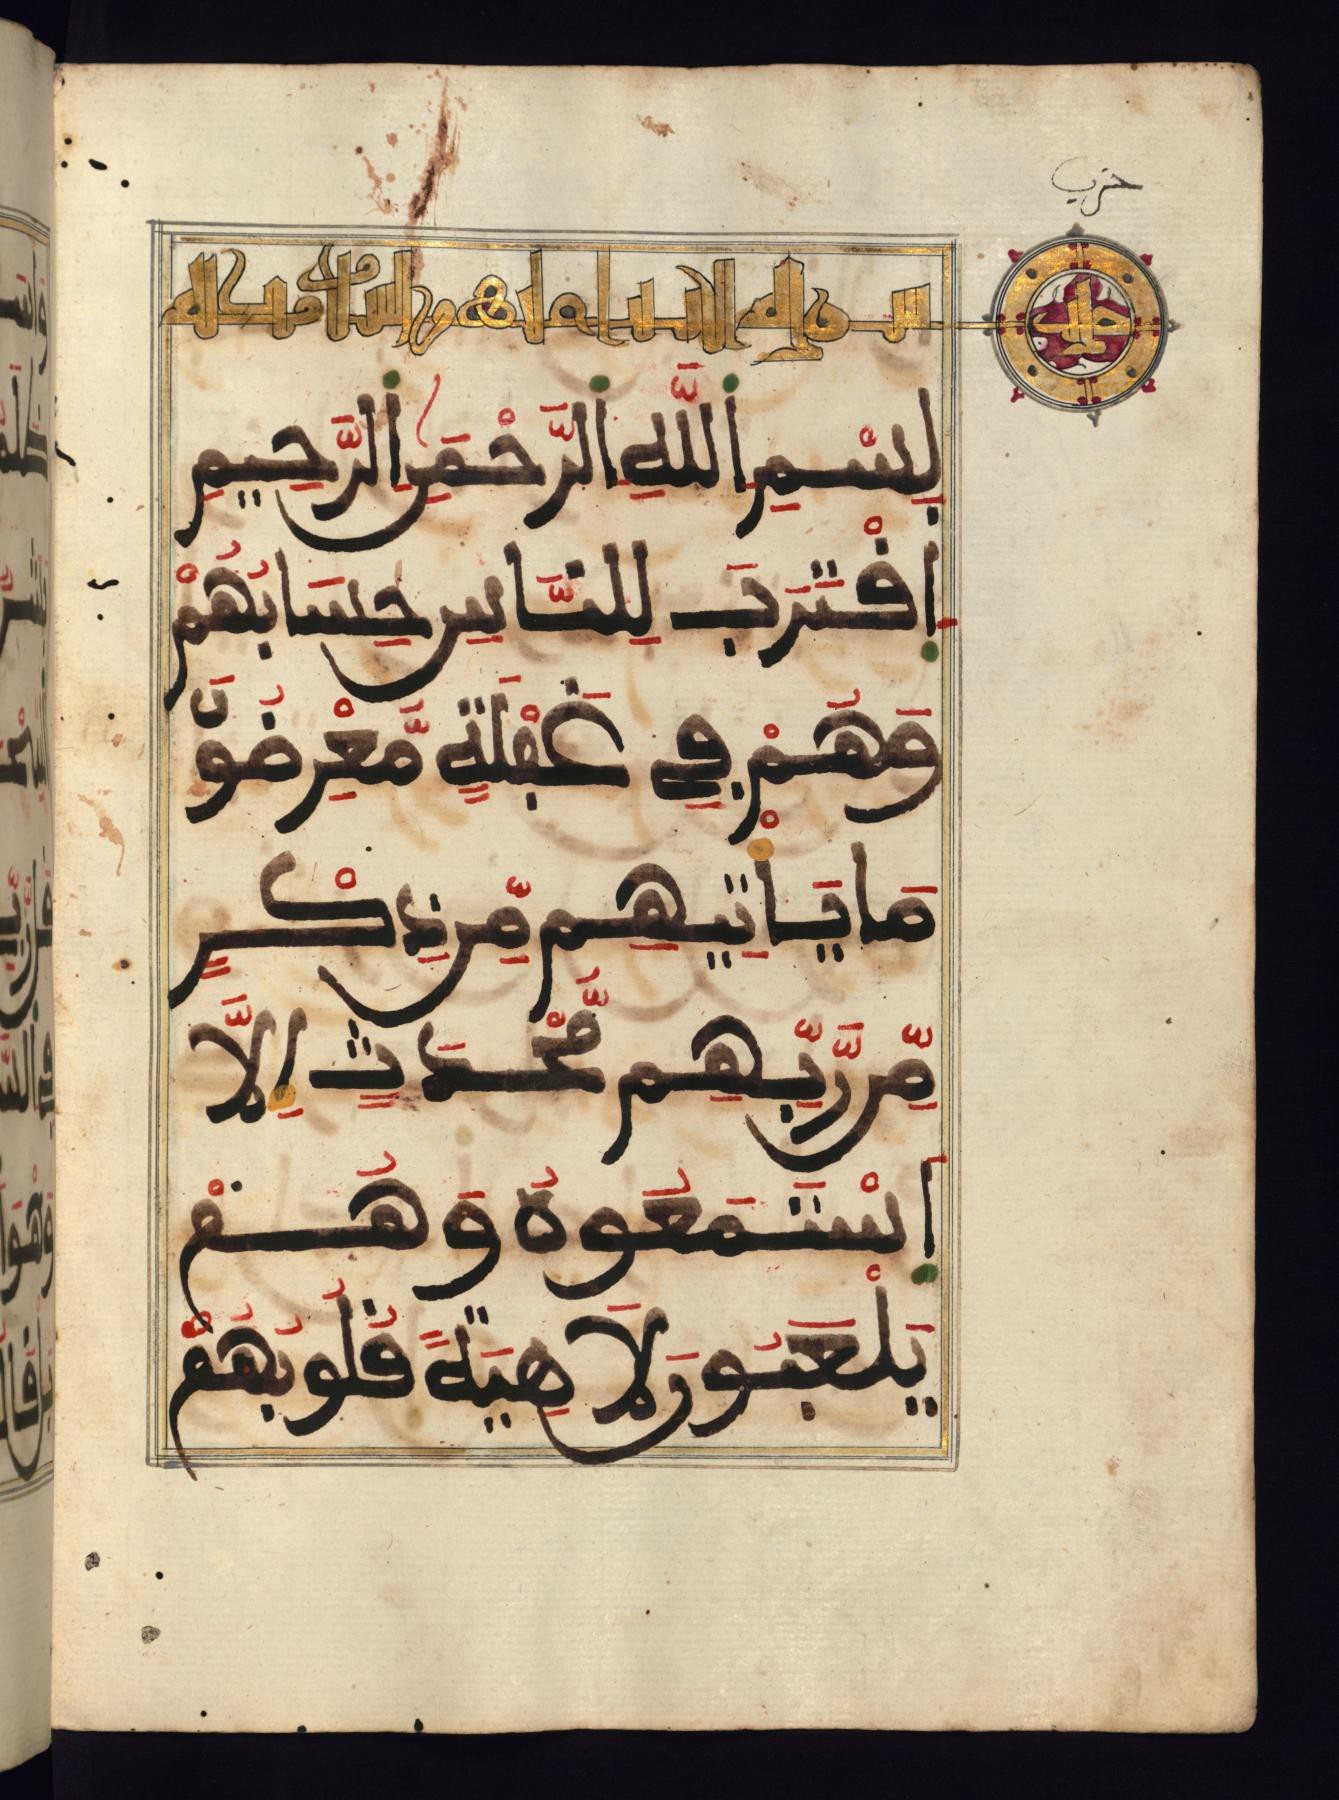 حزب
سورة الانبياء عليهم السلام مكية
بِسْمِ اللَّهِ الرَّحْمَنِ الرَّحِيمِ
اقْتَرَبَ لِلنَّاسِ حِسَابُهُمْ
وَهُمْ فِي غَفْلَةٍ مُّعْرِضُونَ
مَا يَأْتِيهِم مِّن ذِكْرٍ
مِّن رَّبِّهِم مُّحْدَثٍ إِلَّا
اسْتَمَعُوهُ وَهُمْ
يَلْعَبُونَ لَاهِيَةً قُلُوبُهُمْ